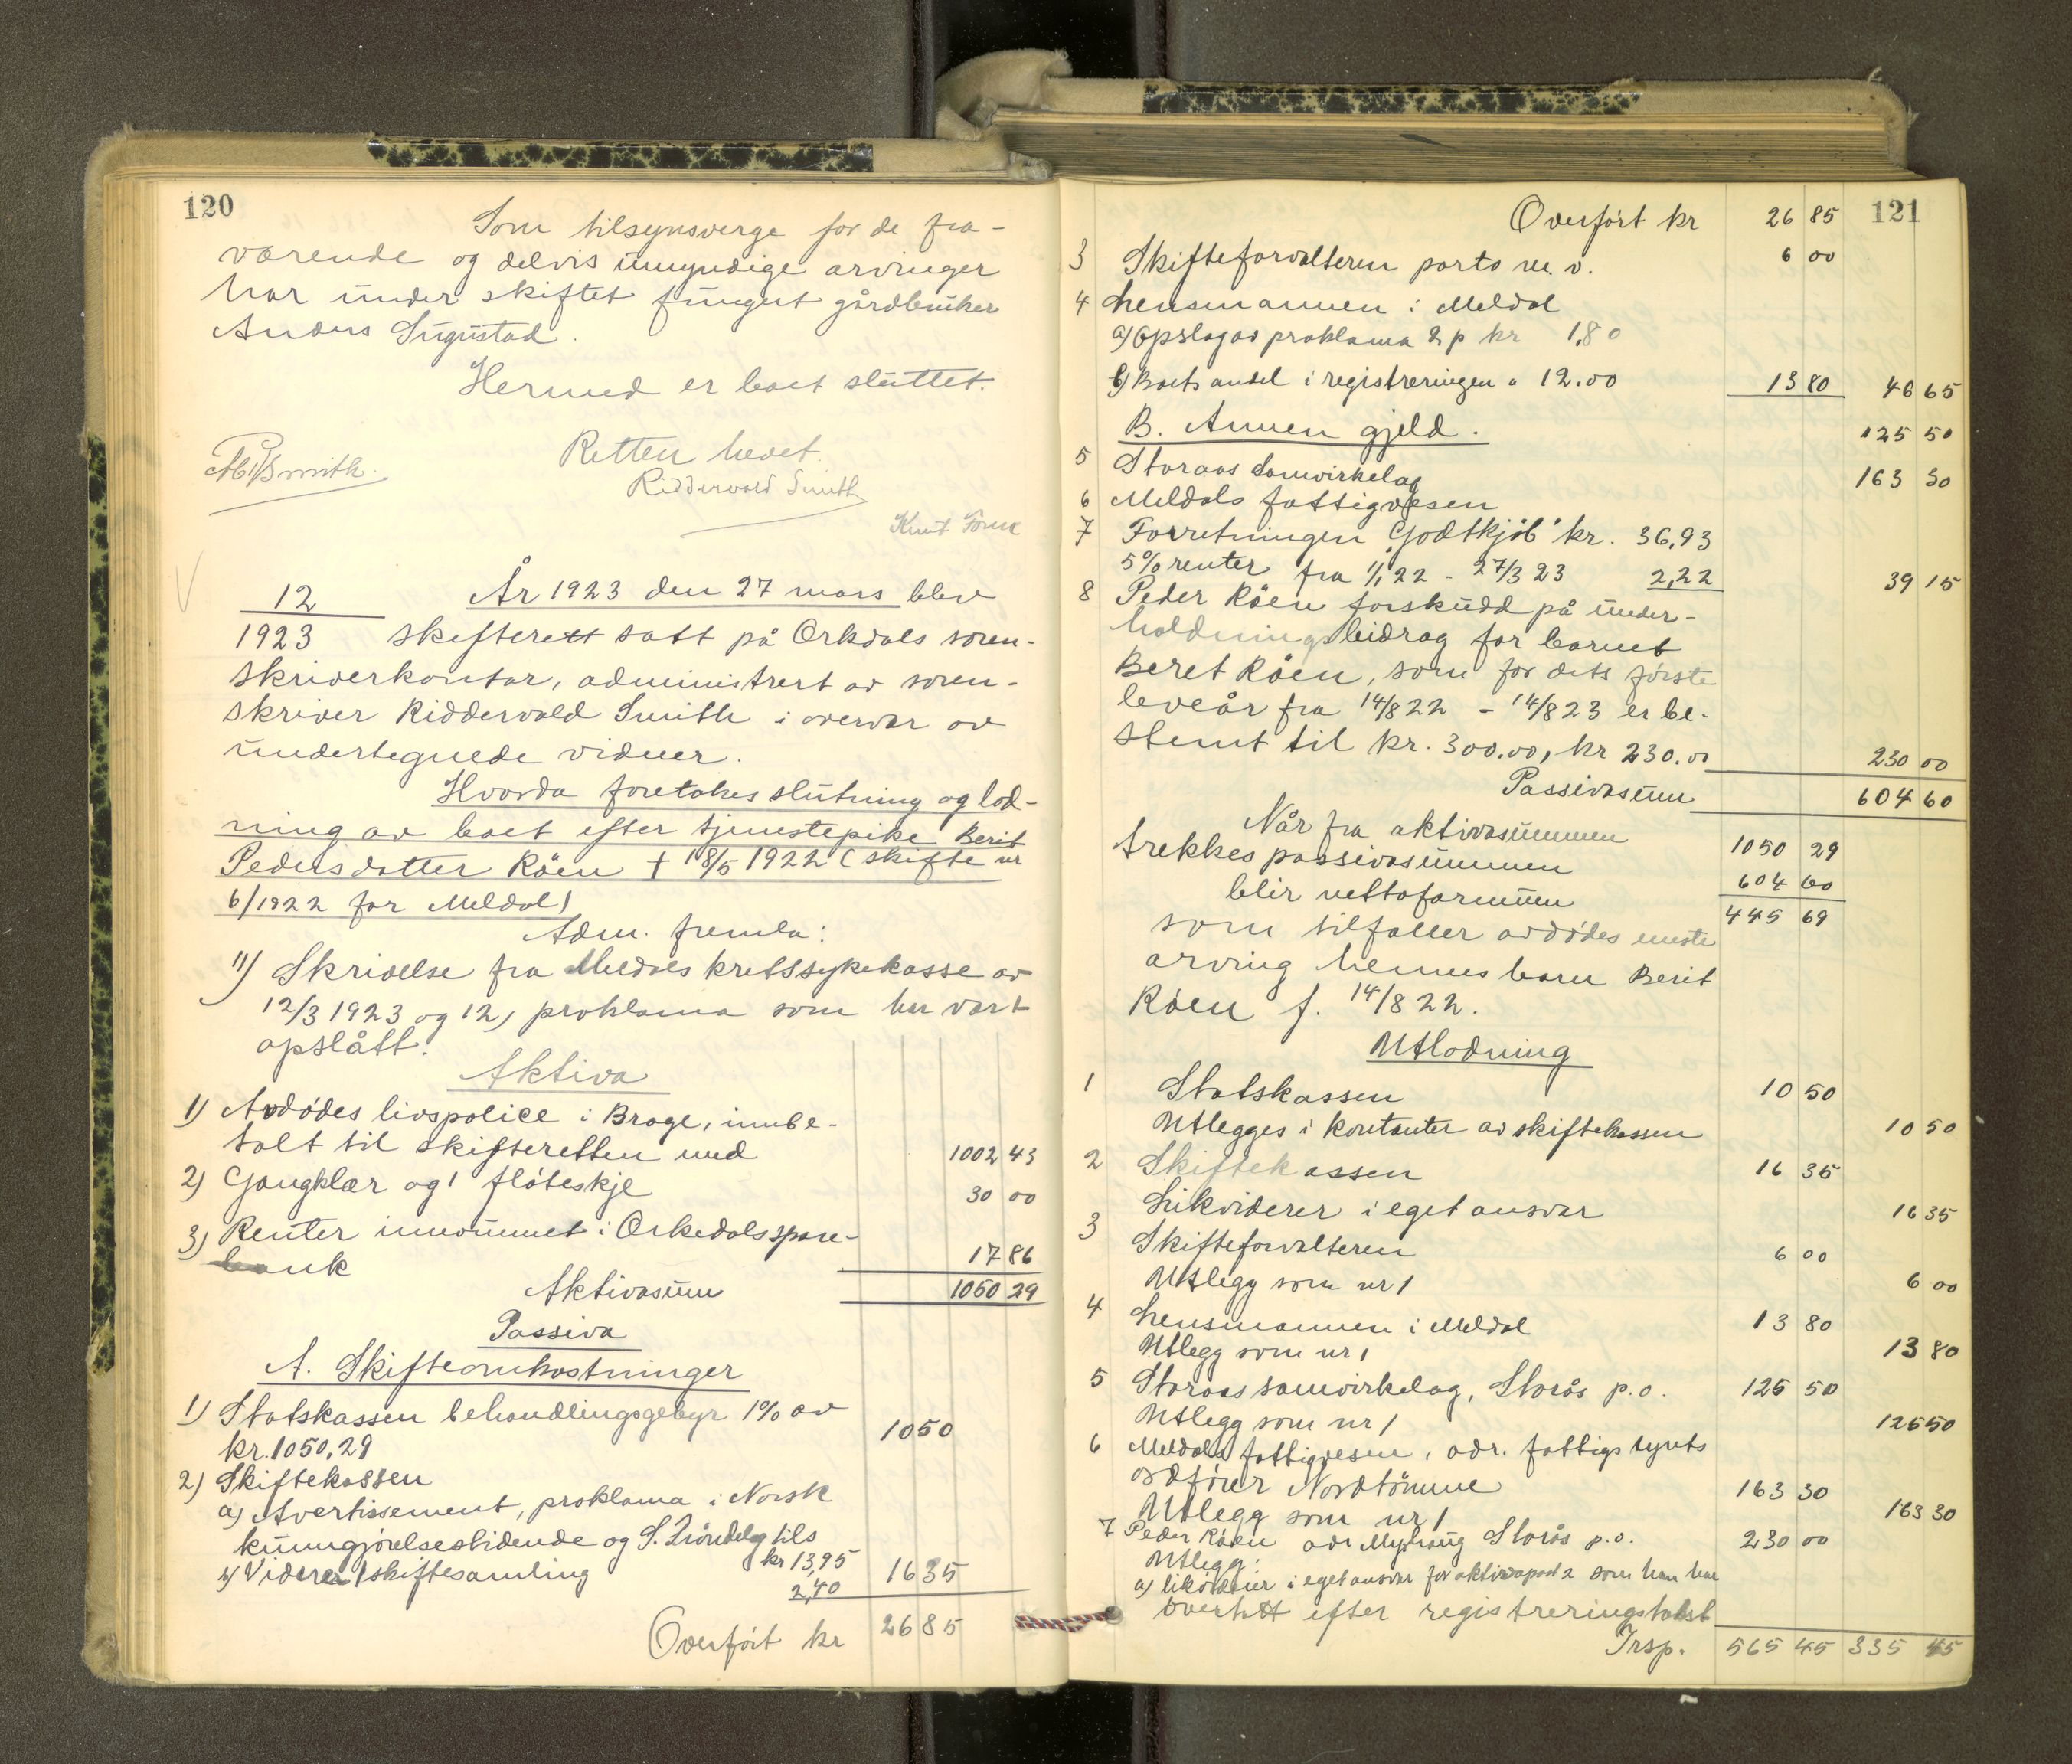 120
Som tilsynsverge for de fra-
værende og delvis umyndige arvinger
har under skiftet fungert gårdbruker
Anders
Hermed er boet sluttet.
Retten hevet.
Riddervold Smith
Knut
12
1923
År 1923 den 27 mars blev
skifterett satt på Orkdals soren-
skriverkontor, administrert av soren-
skriver Riddervold Smith i overvær av
undertegnede vidner.
Hvorda foretokes slutning og lod-
ning av boet efter tjenestepike Berit
Pedersdatter Röen † 18/5 1922 (skifte nr
6/1922 for Meldal)
Adm. fremla:
11) Skrivelse fra Meldals kretssykekasse av
12/3 1923 og 12) proklama som har vært
opslått.
Aktiva
1) Avdødes livspolice i Brage, innbe-
talt til skifteretten med 1002 43
2) Gangklær og 1 fløteskje 30 00
3) Renter innvunnet i Orkedals spare-
bank 17 86
Aktivasum 1050 29
Passiva
A. Skifteomkostninger
1) Statskassen behandlingsgebyr 1% av
kr. 1050,29 10 50
2) Skiftekassen
a) Avertissement, proklama i Norsk
kunngjørelsestidende og S. Trøndelag tils
kr 13,95
b) Viderer 1 skiftesamling 2,40 16 35
Overført kr 26 85
121
Overført kr 26 85
3 Skifteforvalteren porto m. v. 6 00
4 Lensmannen i Meldal
a) Opslag av proklama 2 p kr 1,80
b) Boets andel i registreringen " 12.00 13 80 46 65
B. Annen gjeld. 125 50
5 Storaas Samvirkelag 163 30
6 Meldals fattigvesen
7 Forretningen "Godtkjöb" kr. 36,93
5% renter fra 1/1 22 - 27/3 23 2,22 39 15
8 Peder Röen forskudd på under-
holdningsbidrag for barnet
Beret Röen, som for dets første
leveår fra 14/8 22 - 14/8 23 er be-
stemt til kr. 300.00, kr 230.00 230 00
Passivasum 604 60
Når fra aktivasummen 1050 29
trekkes passivasummen 604 60
blir nettoformuen 445 69
som tilfaller avdødes eneste
arving hennes barn Berit
Röen f. 14/8 22.
Utlodning
1 Statskassen 10 50
Utlegges i kontanter av skiftekassen 10 50
2 Skiftekassen 16 35
Likviderer i eget ansvar 16 35
3 Skifteforvalteren 6 00
Utlegg som nr 1 6 00
4 Lensmannen i Meldal 13 80
Utlegg som nr 1 13 80
5 Storaas samvirkelag, Storås p.o. 125 50
Utlegg som nr 1 125 50
6 Meldals fattigvesen, adr. fattigstyrets
ordfører Nordtömme 163 30
Utlegg som nr 1 163 30
7 Peder Röen adr Myhaug Storås p.o. 230 00
Utlegg:
a) likviderer i eget ansvar for aktivapost 2 som han har
overtatt efter registreringstakst
Trsp. 565 45 335 45